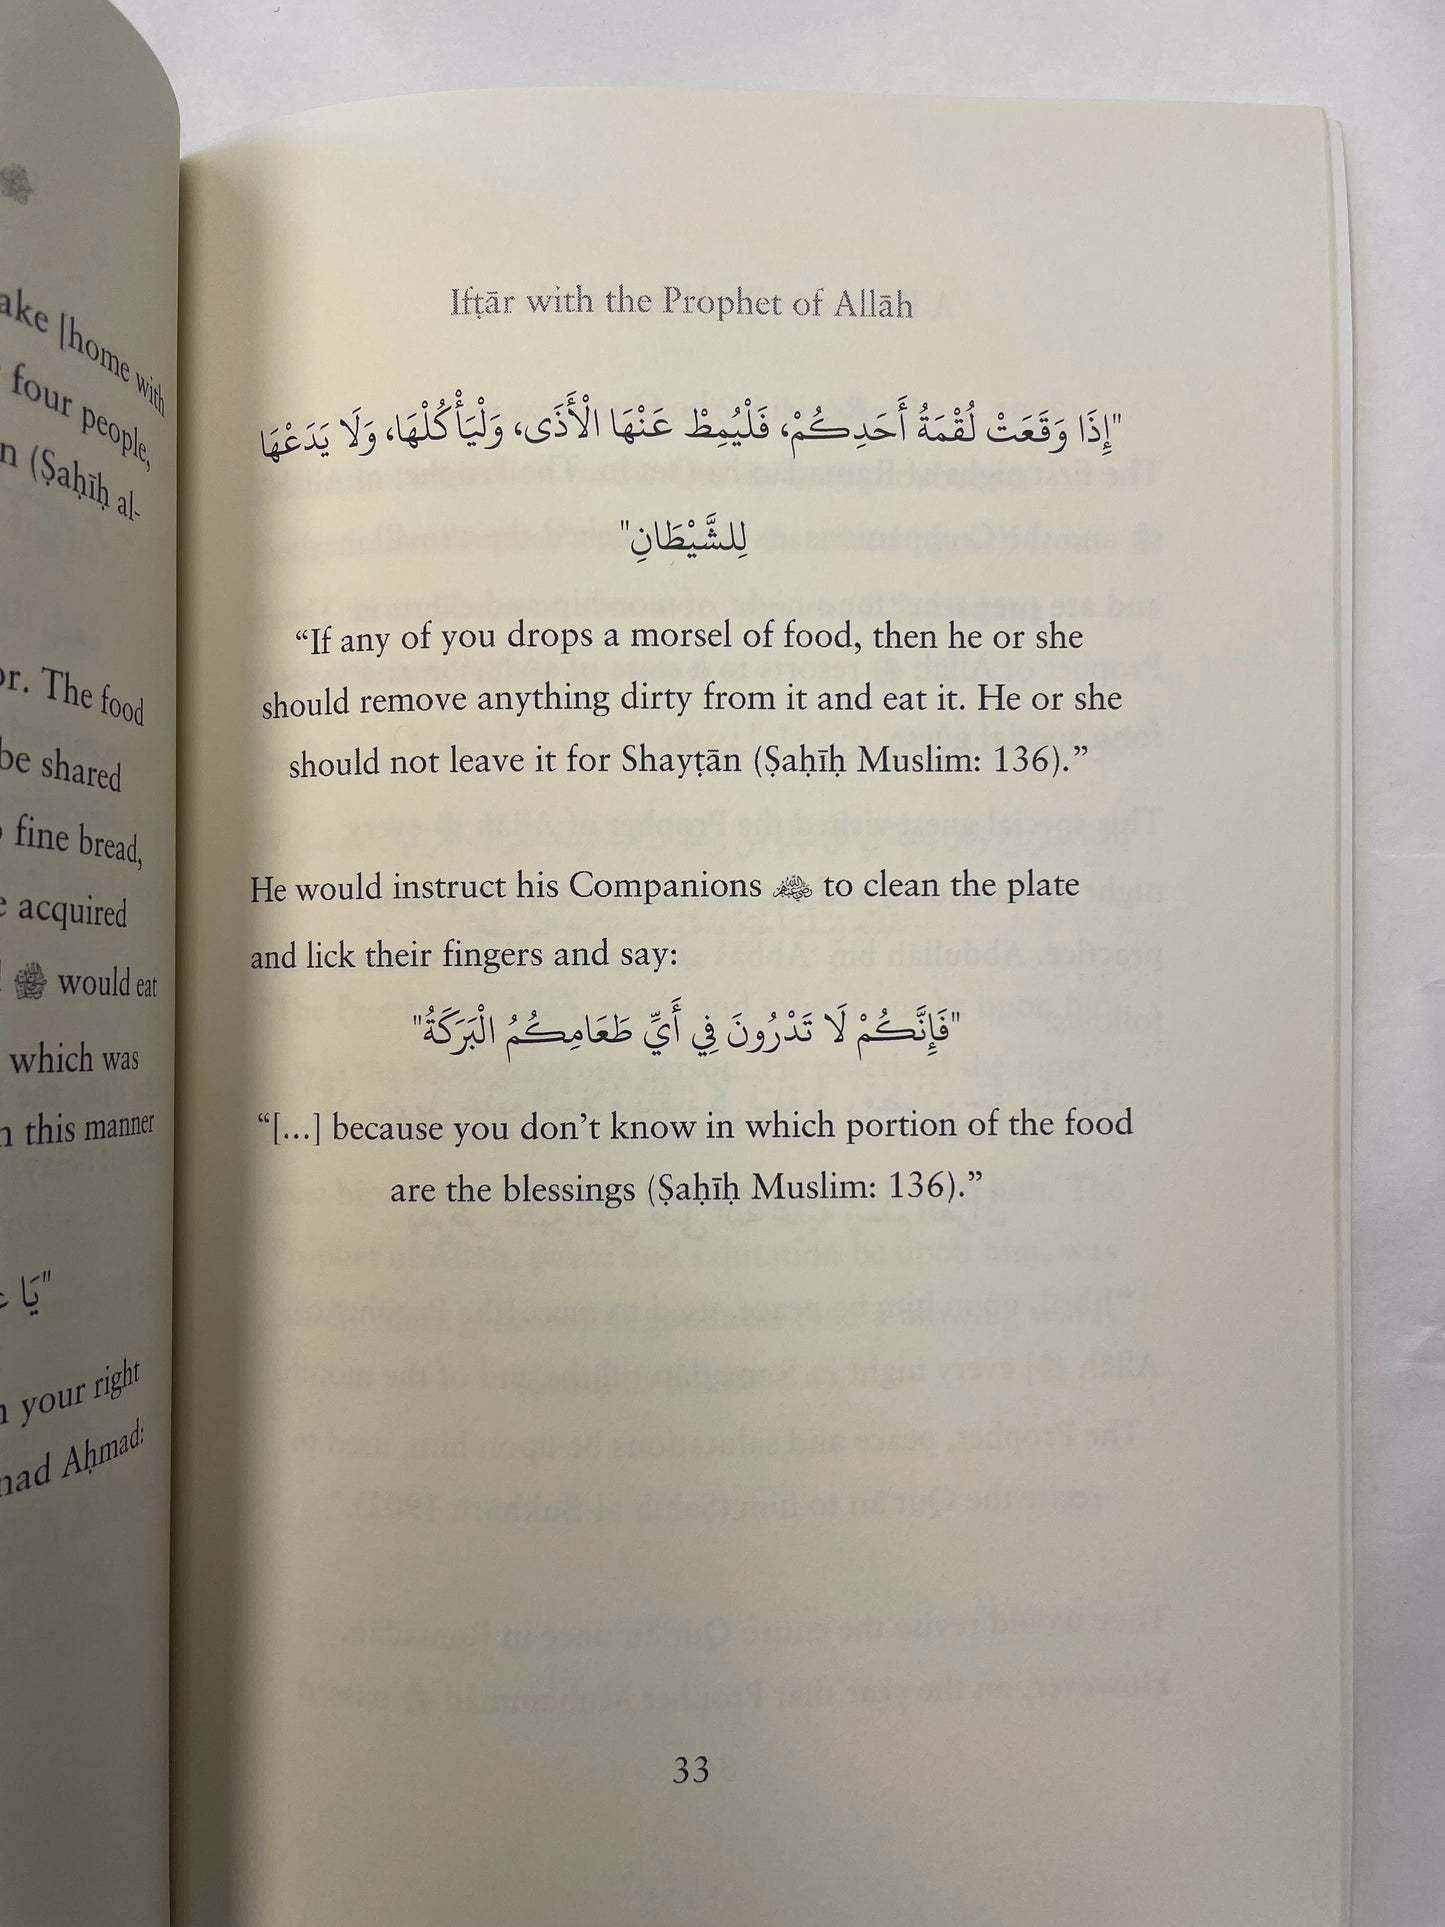 ake [home with
four people,
n (Ṣaḥīḥ al-
or. The food
be shared
fine bread,
acquired
ﷺ would eat
which was
n this manner
"يَا
n your right
nad Aḥmad:
Ifṭār with the Prophet of Allāh
"إِذَا وَقَعَتْ لُقْمَةُ أَحَدِكُمْ، فَلْيُمِطْ عَنْهَا الْأَذَى، وَلْيَأْكُلْهَا، وَلَا يَدَعْهَا
لِلشَّيْطَانِ"
“If any of you drops a morsel of food, then he or she
should remove anything dirty from it and eat it. He or she
should not leave it for Shayṭān (Ṣaḥīḥ Muslim: 136).”
He would instruct his Companions to clean the plate
and lick their fingers and say:
"فَإِنَّكُمْ لَا تَدْرُونَ فِي أَيِّ طَعَامِكُمُ الْبَرَكَةُ"
“[...] because you don’t know in which portion of the food
are the blessings (Ṣaḥīḥ Muslim: 136).”
33